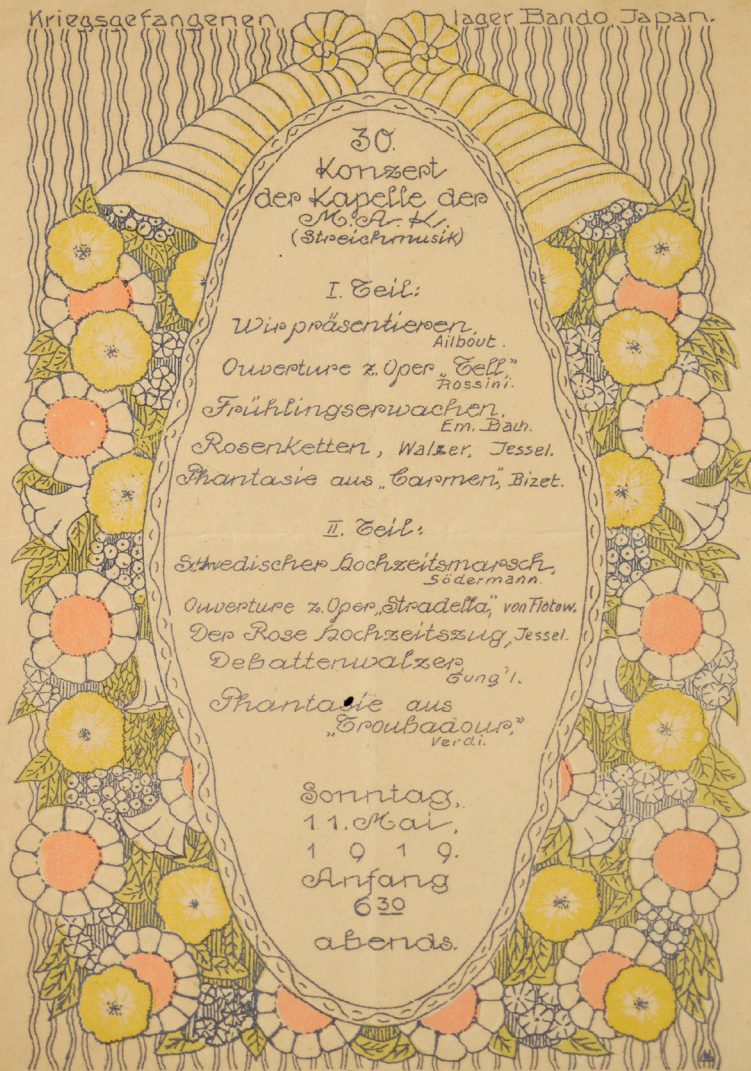 Kriegsgefangenen lager Bando, Japan.
30.
Konzert
der Kapelle der
M. A. K.
(Streichmusik)
I. Teil:
Wir präsentieren,
Ailbout.
Ouverture z. Oper „Tell,”
Rossini.
Frühlingserwachen,
Em. Bach.
Rosenketten, Walzer, Jessel.
Phantasie aus „Carmen”, Bizet.
II. Teil:
Schwedischer Hochzeitsmarsch,
Södermann.
Ouverture z. Oper „Stradella,” von Flotow.
Der Rose Hochzeitszug, Jessel.
Debattenwalzer,
Gung'l.
Phantasie aus
„Troubadour,”
Verdi.
Sonntag,
11. Mai,
1919.
Anfang
6 30
abends.